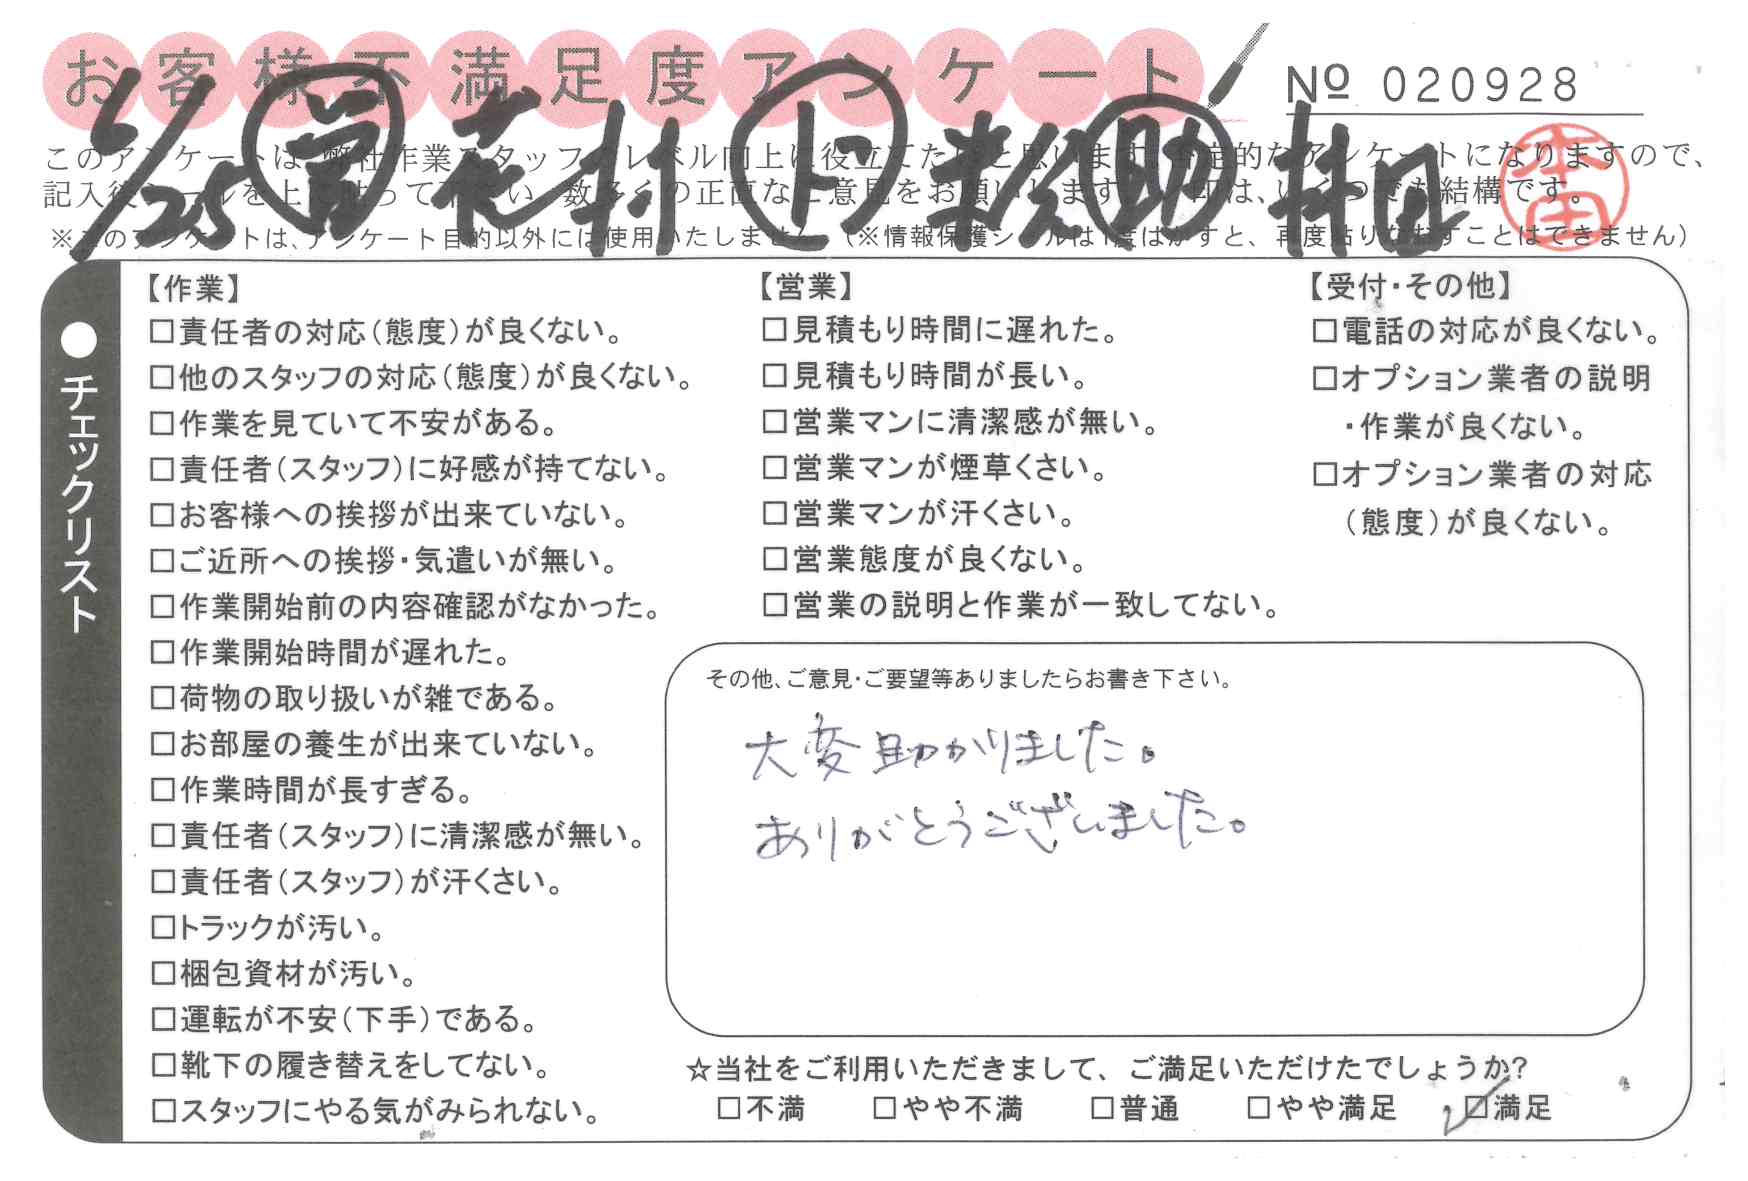 お客様不満足度アンケート
№ 020928
6/25 営 花村 ト 米谷 助 村田
本田
このアンケートは、弊社作業スタッフのレベル向上に役立てたいと思います。否定的なアンケートになりますので、
記入後シールを上に貼って下さい。数多くの正直なご意見をお願いします。レ印は、いくつでも結構です。
※このアンケートは、アンケート目的以外には使用いたしません。（※情報保護シールは1度はがすと、再度貼りなおすことはできません）
●チェックリスト
【作業】
□責任者の対応（態度）が良くない。
□他のスタッフの対応（態度）が良くない。
□作業を見ていて不安がある。
□責任者（スタッフ）に好感が持てない。
□お客様への挨拶が出来ていない。
□ご近所への挨拶・気遣いが無い。
□作業開始前の内容確認がなかった。
□作業開始時間が遅れた。
□荷物の取り扱いが雑である。
□お部屋の養生が出来ていない。
□作業時間が長すぎる。
□責任者（スタッフ）に清潔感が無い。
□責任者（スタッフ）が汗くさい。
□トラックが汚い。
□梱包資材が汚い。
□運転が不安（下手）である。
□靴下の履き替えをしてない。
□スタッフにやる気がみられない。
【営業】
□見積もり時間に遅れた。
□見積もり時間が長い。
□営業マンに清潔感が無い。
□営業マンが煙草くさい。
□営業マンが汗くさい。
□営業態度が良くない。
□営業の説明と作業が一致してない。
【受付・その他】
□電話の対応が良くない。
□オプション業者の説明
・作業が良くない。
□オプション業者の対応
（態度）が良くない。
その他、ご意見・ご要望等ありましたらお書き下さい。
大変助かりました。
ありがとうございました。
☆当社をご利用いただきまして、ご満足いただけたでしょうか?
□不満 □やや不満 □普通 □やや満足 ☑満足